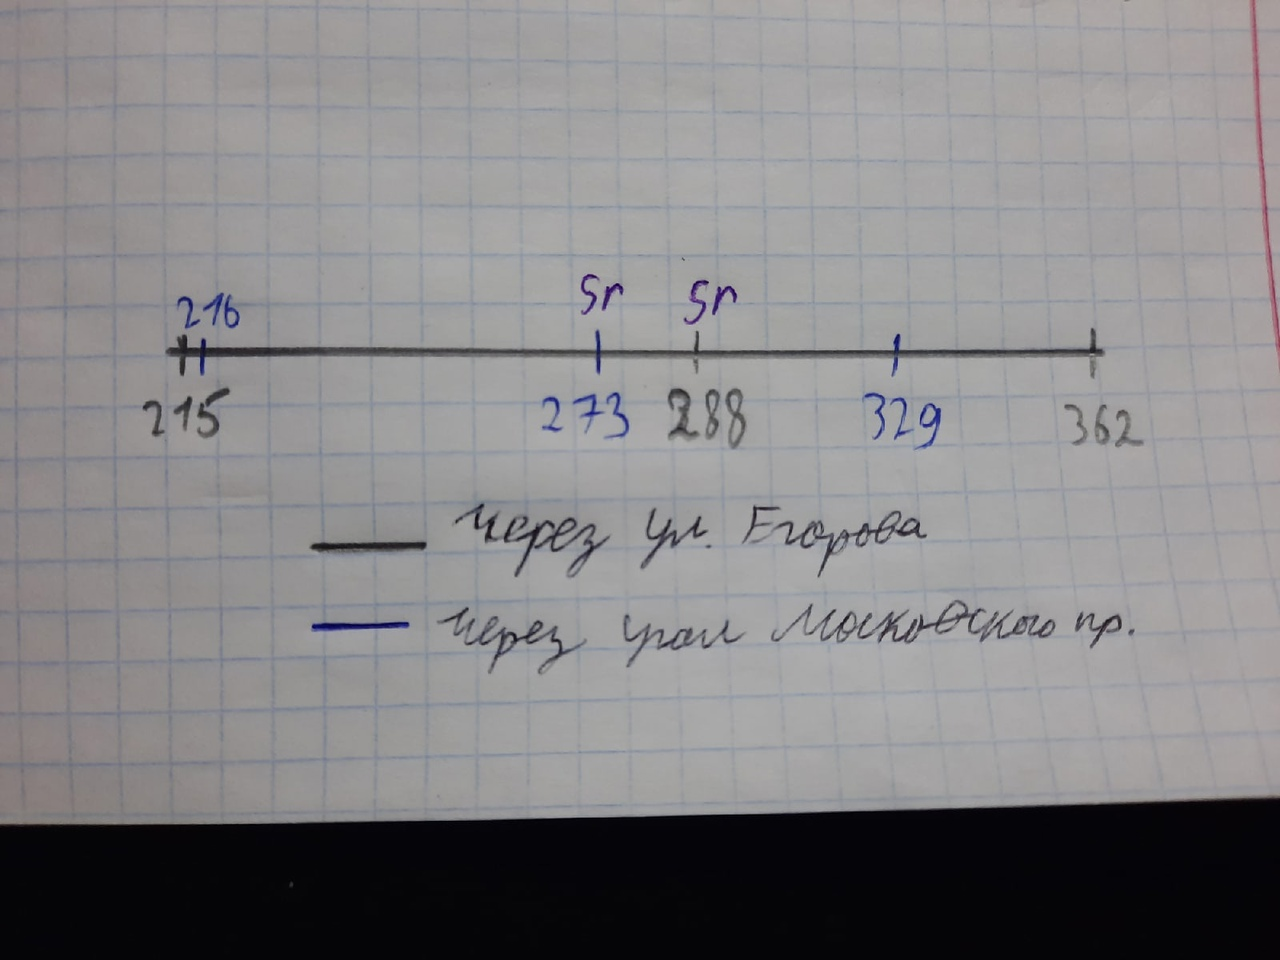 Sr Sr
216
215 273 288 329 362
через ул. Егорова
через угол Московского пр.